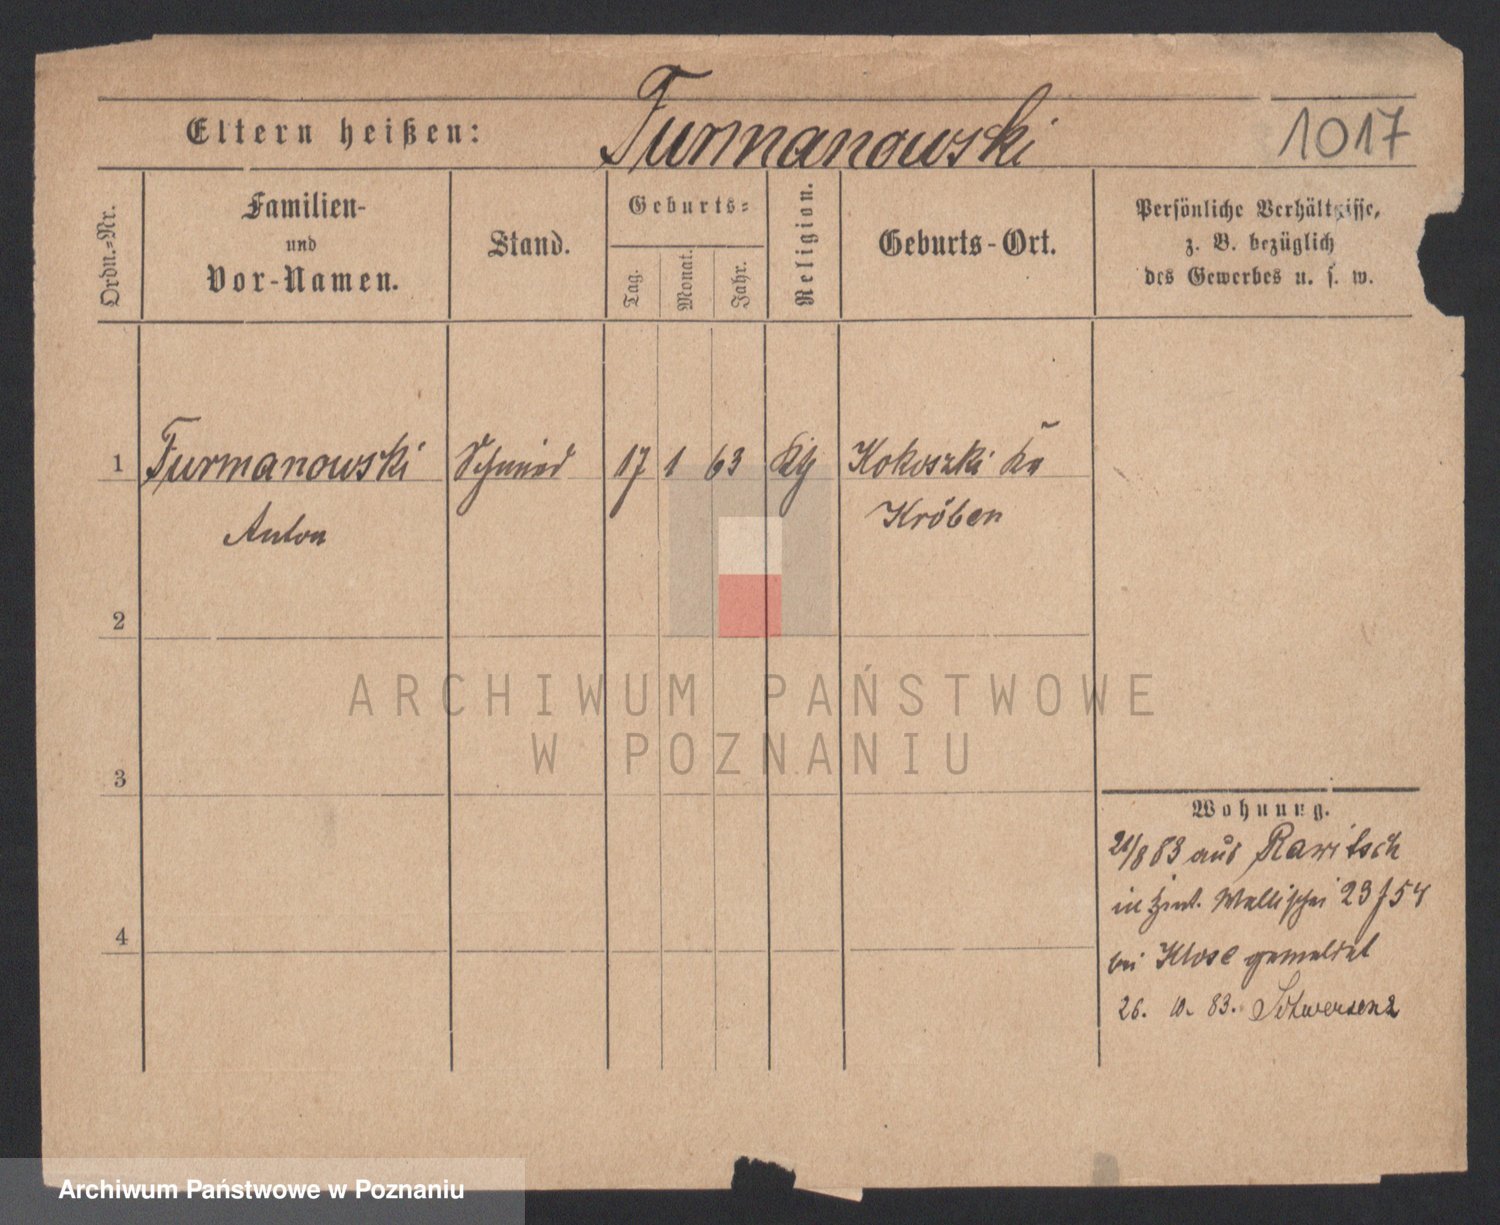 Eltern heißen: Furmanowski 1017
Ordn.-Nr.
Familien-
und
Vor-Namen.
Stand.
Geburts-
Tag.
Monat.
Jahr.
Religion.
Geburts-Ort.
Persönliche Verhältnisse,
z. B. bezüglich
des Gewerbes u. s. w.
1 Furmanowski Schmied 17 1 63 Kth Kokoszki
Anton Kröben
2
3
4
Wohnung.
21/8 83 aus Rawitsch
in Wallischei 23
bei Klose gemeldet
26. 10. 83. Schwersenz
ARCHIWUM PAŃSTWOWE
W POZNANIU
Archiwum Państwowe w Poznaniu